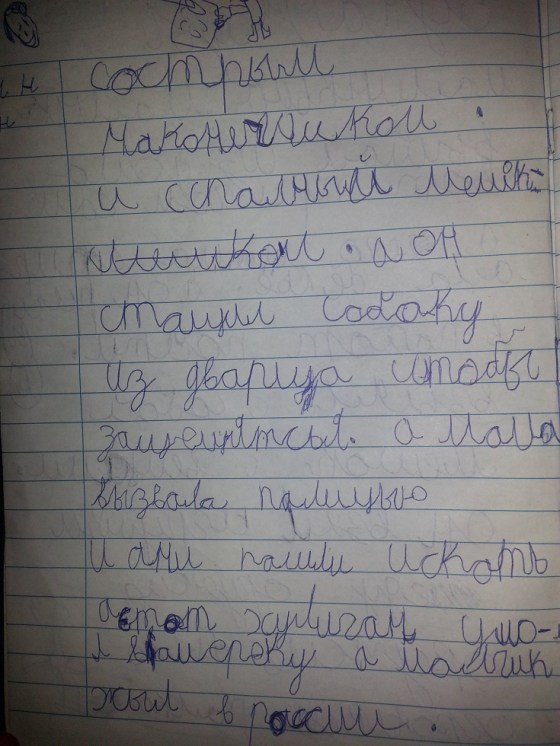 сострым
наконечиком .
и сспалный мешок
а он
стащил собаку
из дварица штобы
защещятсья. а мама
вызвала палицыю
и ани пашли искать
аетот хулиган умо-
л вамереку а малчик
жыл в россии.